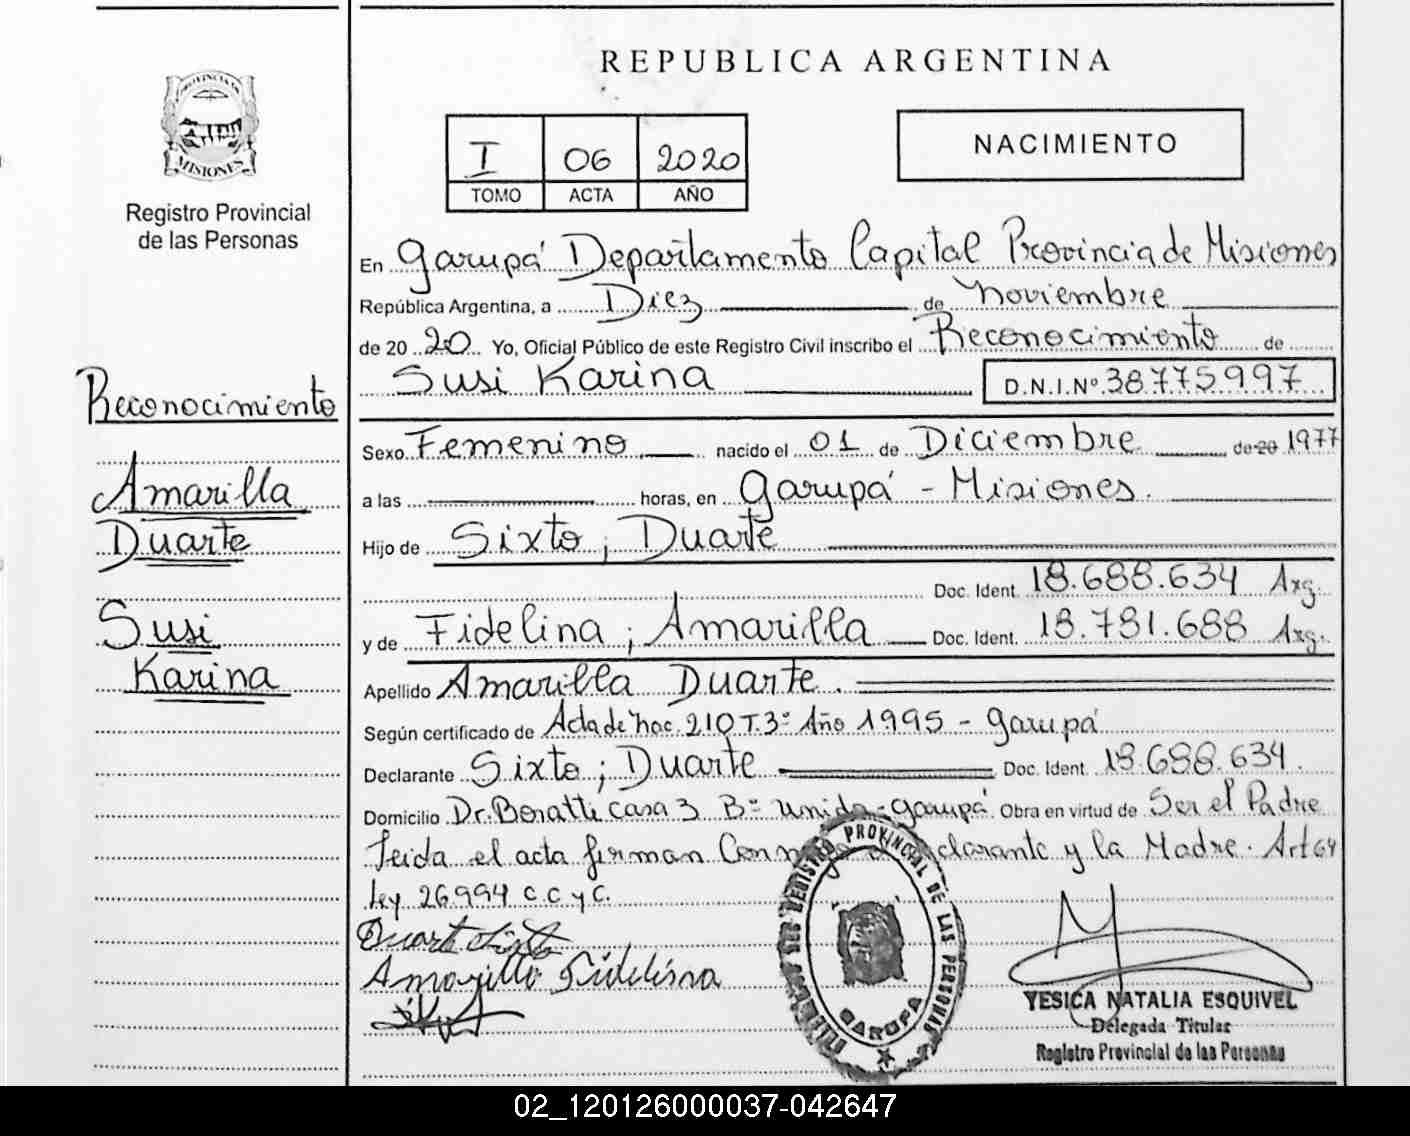 REPUBLICA ARGENTINA
PROVINCIA DE
MISIONES
Registro Provincial
de las Personas
I 06 2020
TOMO ACTA AÑO
NACIMIENTO
En Garupá Departamento Capital Provincia de Misiones
República Argentina, a Diez de noviembre
de 20 20 Yo, Oficial Público de este Registro Civil inscribo el Reconocimiento de
Susi Karina D.N.I.Nº 38775997
Reconocimiento
Amarilla
Duarte
Susi
Karina
Sexo Femenino nacido el 01 de Diciembre de 20 1977
a las horas, en Garupá - Misiones.
Hijo de Sixto ; Duarte
Doc. Ident. 18.688.634 Arg.
y de Fidelina ; Amarilla Doc. Ident. 18.781.688 Arg.
Apellido Amarilla Duarte.
Según certificado de Acta de Nac. 210 T.3º Año 1995 - Garupá
Declarante Sixto ; Duarte Doc. Ident. 18.688.634.
Domicilio Dr. Boratti Casa 3 Bº Unido - Garupá Obra en virtud de Ser el Padre
Leida el acta firman Conmigo el declarante y la Madre. Art 64
Ley 26994 C.C y C.
Duarte Sixto
Amarilla Fidelina
PROVINCIAL DE LAS PERSONAS
GARUPA
YESICA NATALIA ESQUIVEL
Delegada Titular
Registro Provincial de las Personas
02_120126000037-042647